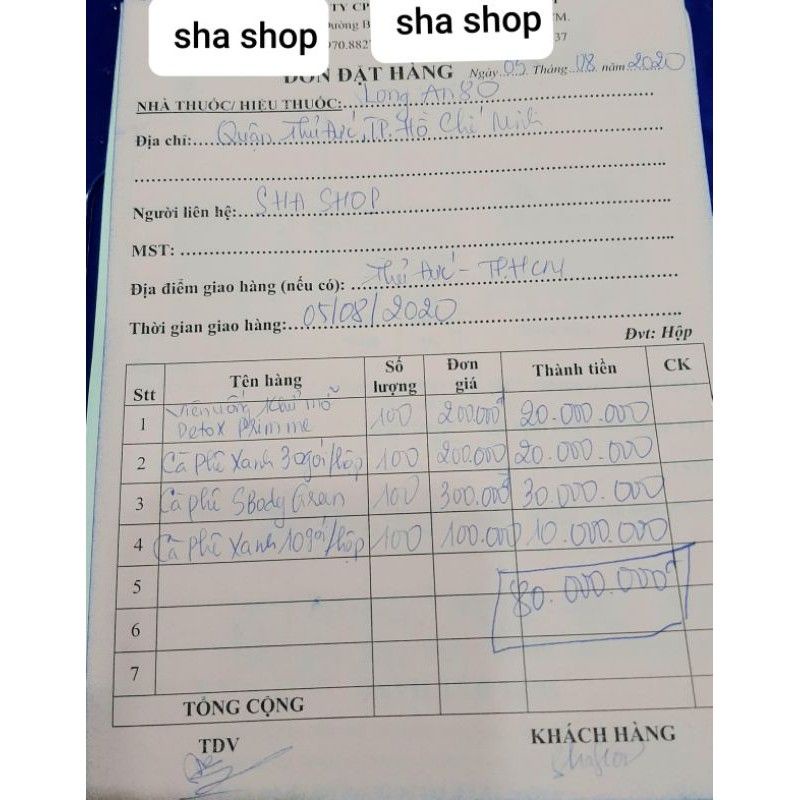 sha shop
sha shop
TY CP
ĐƠN ĐẶT HÀNG Ngày 05 Tháng 08 năm 2020
NHÀ THUỐC/ HIỆU THUỐC: Long An 80
Địa chỉ: Quận Thủ Đức, TP. Hồ Chí Minh
Người liên hệ: SHA SHOP
MST:
Địa điểm giao hàng (nếu có): Thủ Đức - TP.HCM
Thời gian giao hàng: 05/08/2020
Đvt: Hộp
Stt Tên hàng Số lượng Đơn giá Thành tiền CK
1 Viên uống khử mỡ Detox Primme 100 200.000đ 20.000.000
2 Cà phê Xanh 30gói/hộp 100 200.000 20.000.000
3 Cà phê SBody Grean 100 300.000đ 30.000.000
4 Cà phê Xanh 10gói/hộp 100 100.000 10.000.000
5 80.000.000đ
6
7
TỔNG CỘNG
TDV KHÁCH HÀNG